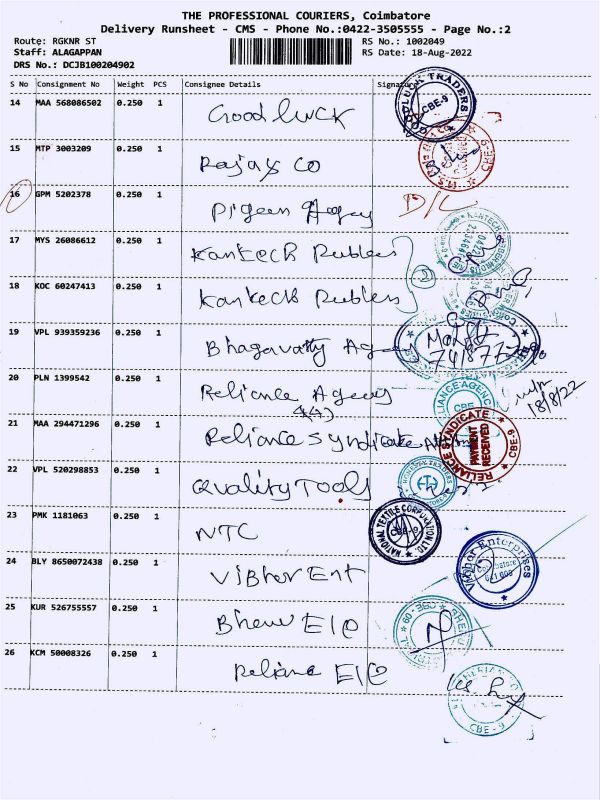 THE PROFESSIONAL COURIERS, Coimbatore
Delivery Runsheet - CMS - Phone No.:0422-3505555 - Page No.:2
Route: RGKNR ST
RS No.: 1002049
Staff: ALAGAPPAN
RS Date: 18-Aug-2022
DRS No.: DCJB100204902
S No Consignment No Weight PCS Consignee Details Signature
14 MAA 568086502 0.250 1 Good luck
GOODLUCK TRADERS CBE-9
15 MTP 3003209 0.250 1 Rajay Co
16 GPM 5202378 0.250 1 Pigeon Agency D/L
17 MYS 26086612 0.250 1 Kantech Rubbers
18 KOC 60247413 0.250 1 Kantech Rubbers
2
19 VPL 939359236 0.250 1 Bhagavathy Agency
20 PLN 1399542 0.250 1 Reliance Agency
(44)
RELIANCE AGENC CBE
18/8/22
21 MAA 294471296 0.250 1 Reliance Syndicate
RELIANCE SYNDICATE PAYMENT RECEIVED CBE-9
22 VPL 520298853 0.250 1 Quality Tools
23 PMK 1181063 0.250 1 NTC
NATIONAL TEXTILE CORPORATION LTD. CBE-9
24 BLY 8650072438 0.250 1 Vibhor Ent
Vibhor Enterprises Coimbatore 641 009
25 KUR 526755557 0.250 1 E/C
26 KCM 50008326 0.250 1 Reliance E/C
CBE - 9